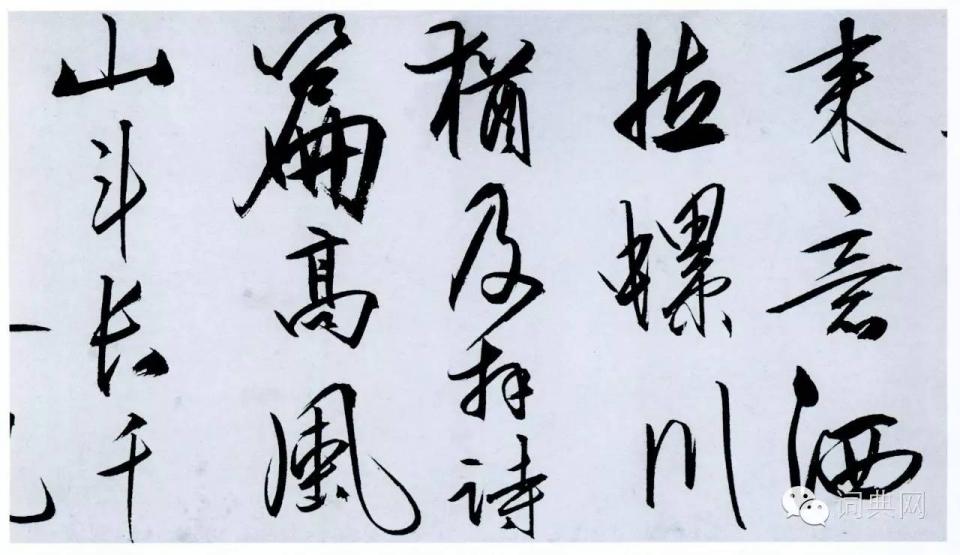 来意洒
螺川
猶及拜詩
篇高風
山斗长千
词典网